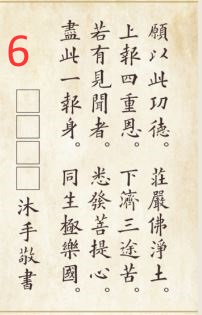 願以此功德。莊嚴佛淨土。
上報四重恩。下濟三途苦。
若有見聞者。悉發菩提心。
盡此一報身。同生極樂國。
6
□□□□沐手敬書